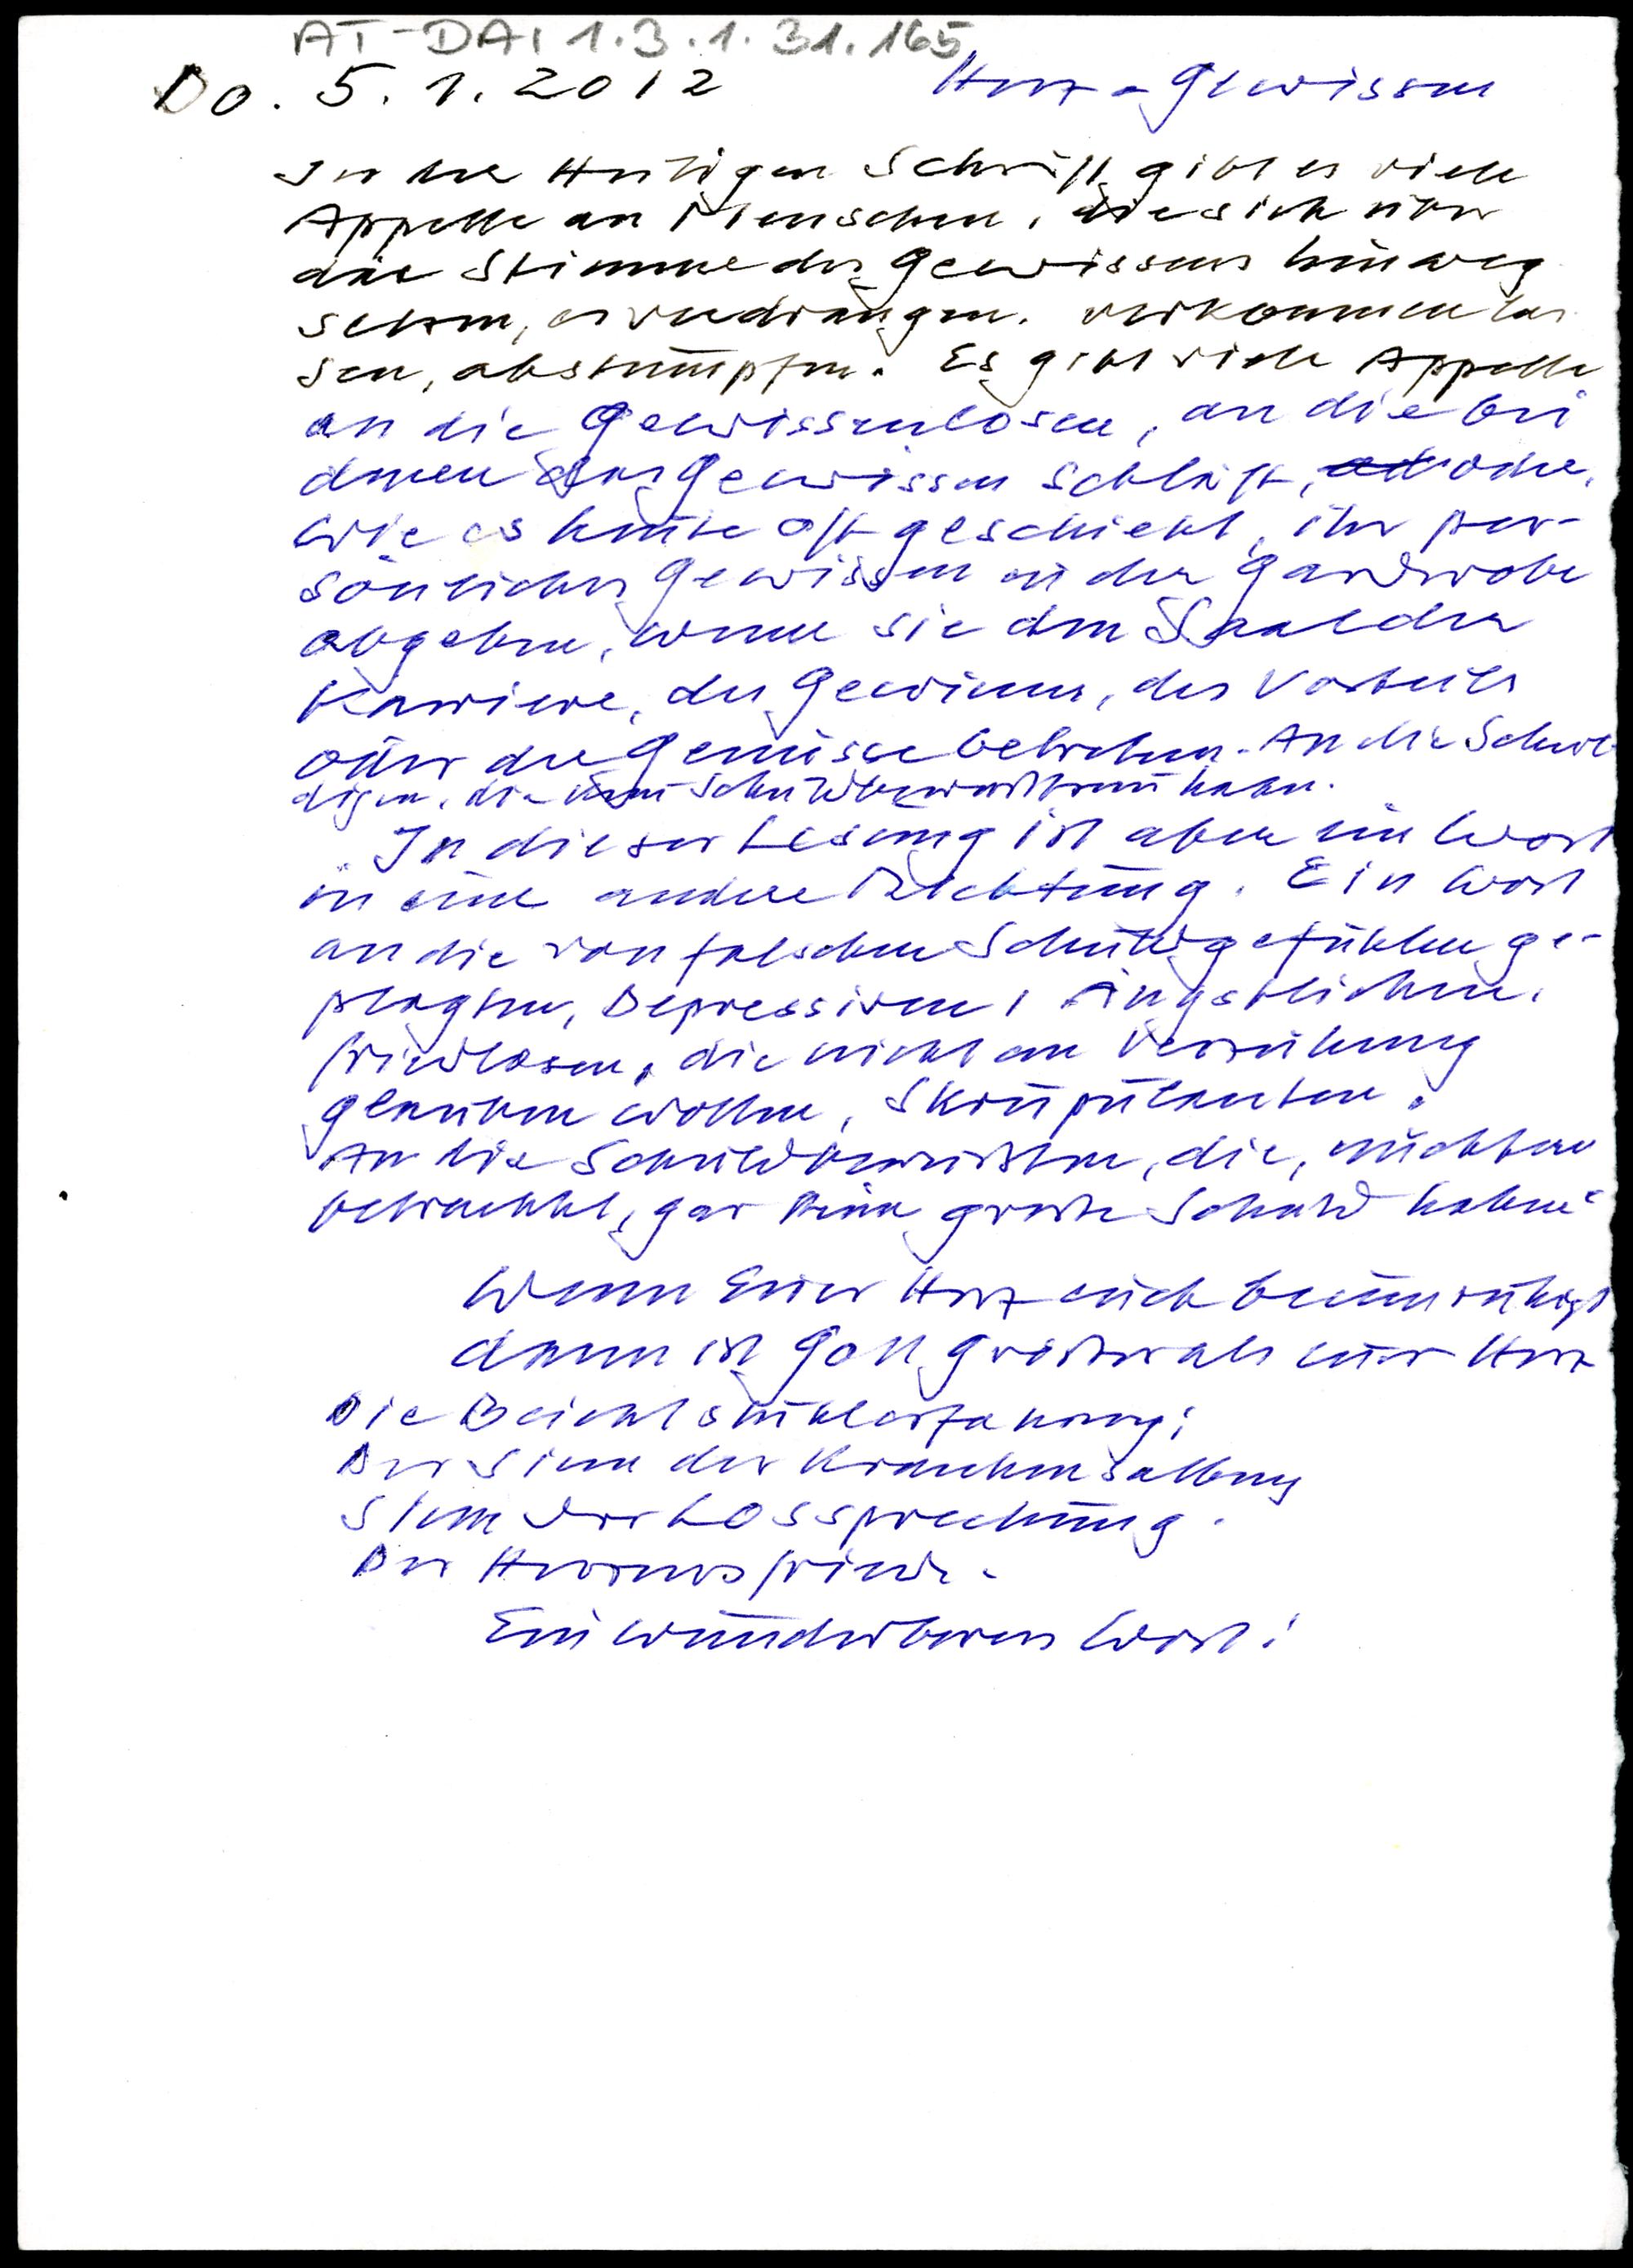 AT-DAI 1.3.1.31.165
Do. 5.1.2012 Herz - Gewissen
In der Heiligen Schrift gibt es viele
Appelle an Menschen, die sich über
die Stimme des Gewissens hinweg
setzen, es verdrängen, verkommen las
sen, abstumpfen. Es gibt viele Appelle
an die Gewissenlosen, an die bei
denen das Gewissen schläft, oder,
wie es heute oft geschieht, ihr per-
sönliches Gewissen an der Garderobe
abgeben, wenn sie den Saal der
Karriere, des Gewinns, des Vorteils
oder der Genüsse betreten. An die Schul
digen, die kein Schuldbewusstsein haben.
In dieser Lesung ist aber ein Wort
in eine andere Richtung. Ein Wort
an die von falschen Schuldgefühlen ge-
plagten, Depressiven, Ängstlichen,
friedlosen, die nicht an Verzeihung
glauben wollen, Skrupulanten.
An die Schuldbewußten, die, nüchtern
betrachtet, gar keine große Schuld haben:
Wenn Euer Herz euch beunruhigt
dann ist Gott größer als euer Herz
Die Beichtstuhlerfahrung;
Der Sinn der Krankensalbung
Sinn der Lossprechung.
Der Herzensfriede.
Ein wunderbares Wort!